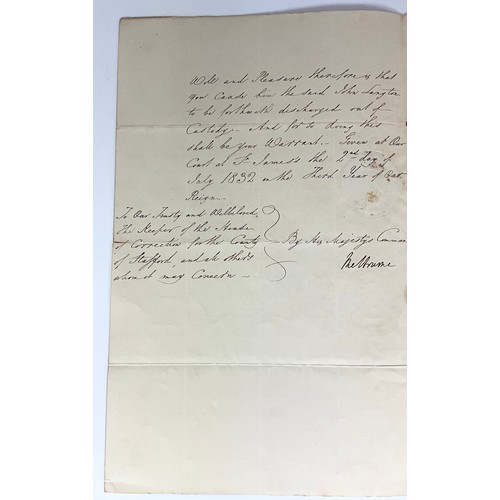 Will and Pleasure therefore is that
you Cause him the said John Langton
to be forthwith discharged out of
Custody. And for so doing this
shall be your Warrant. Given at Our
Court at St James's the 2nd day of
July 1832 in the Third Year of Our
Reign.
To Our Trusty and Welbeloved,
The Keeper of the House
of Correction for the County
of Stafford, and all others
whom it may Concern
By His Majesty's Comman
Melbourne